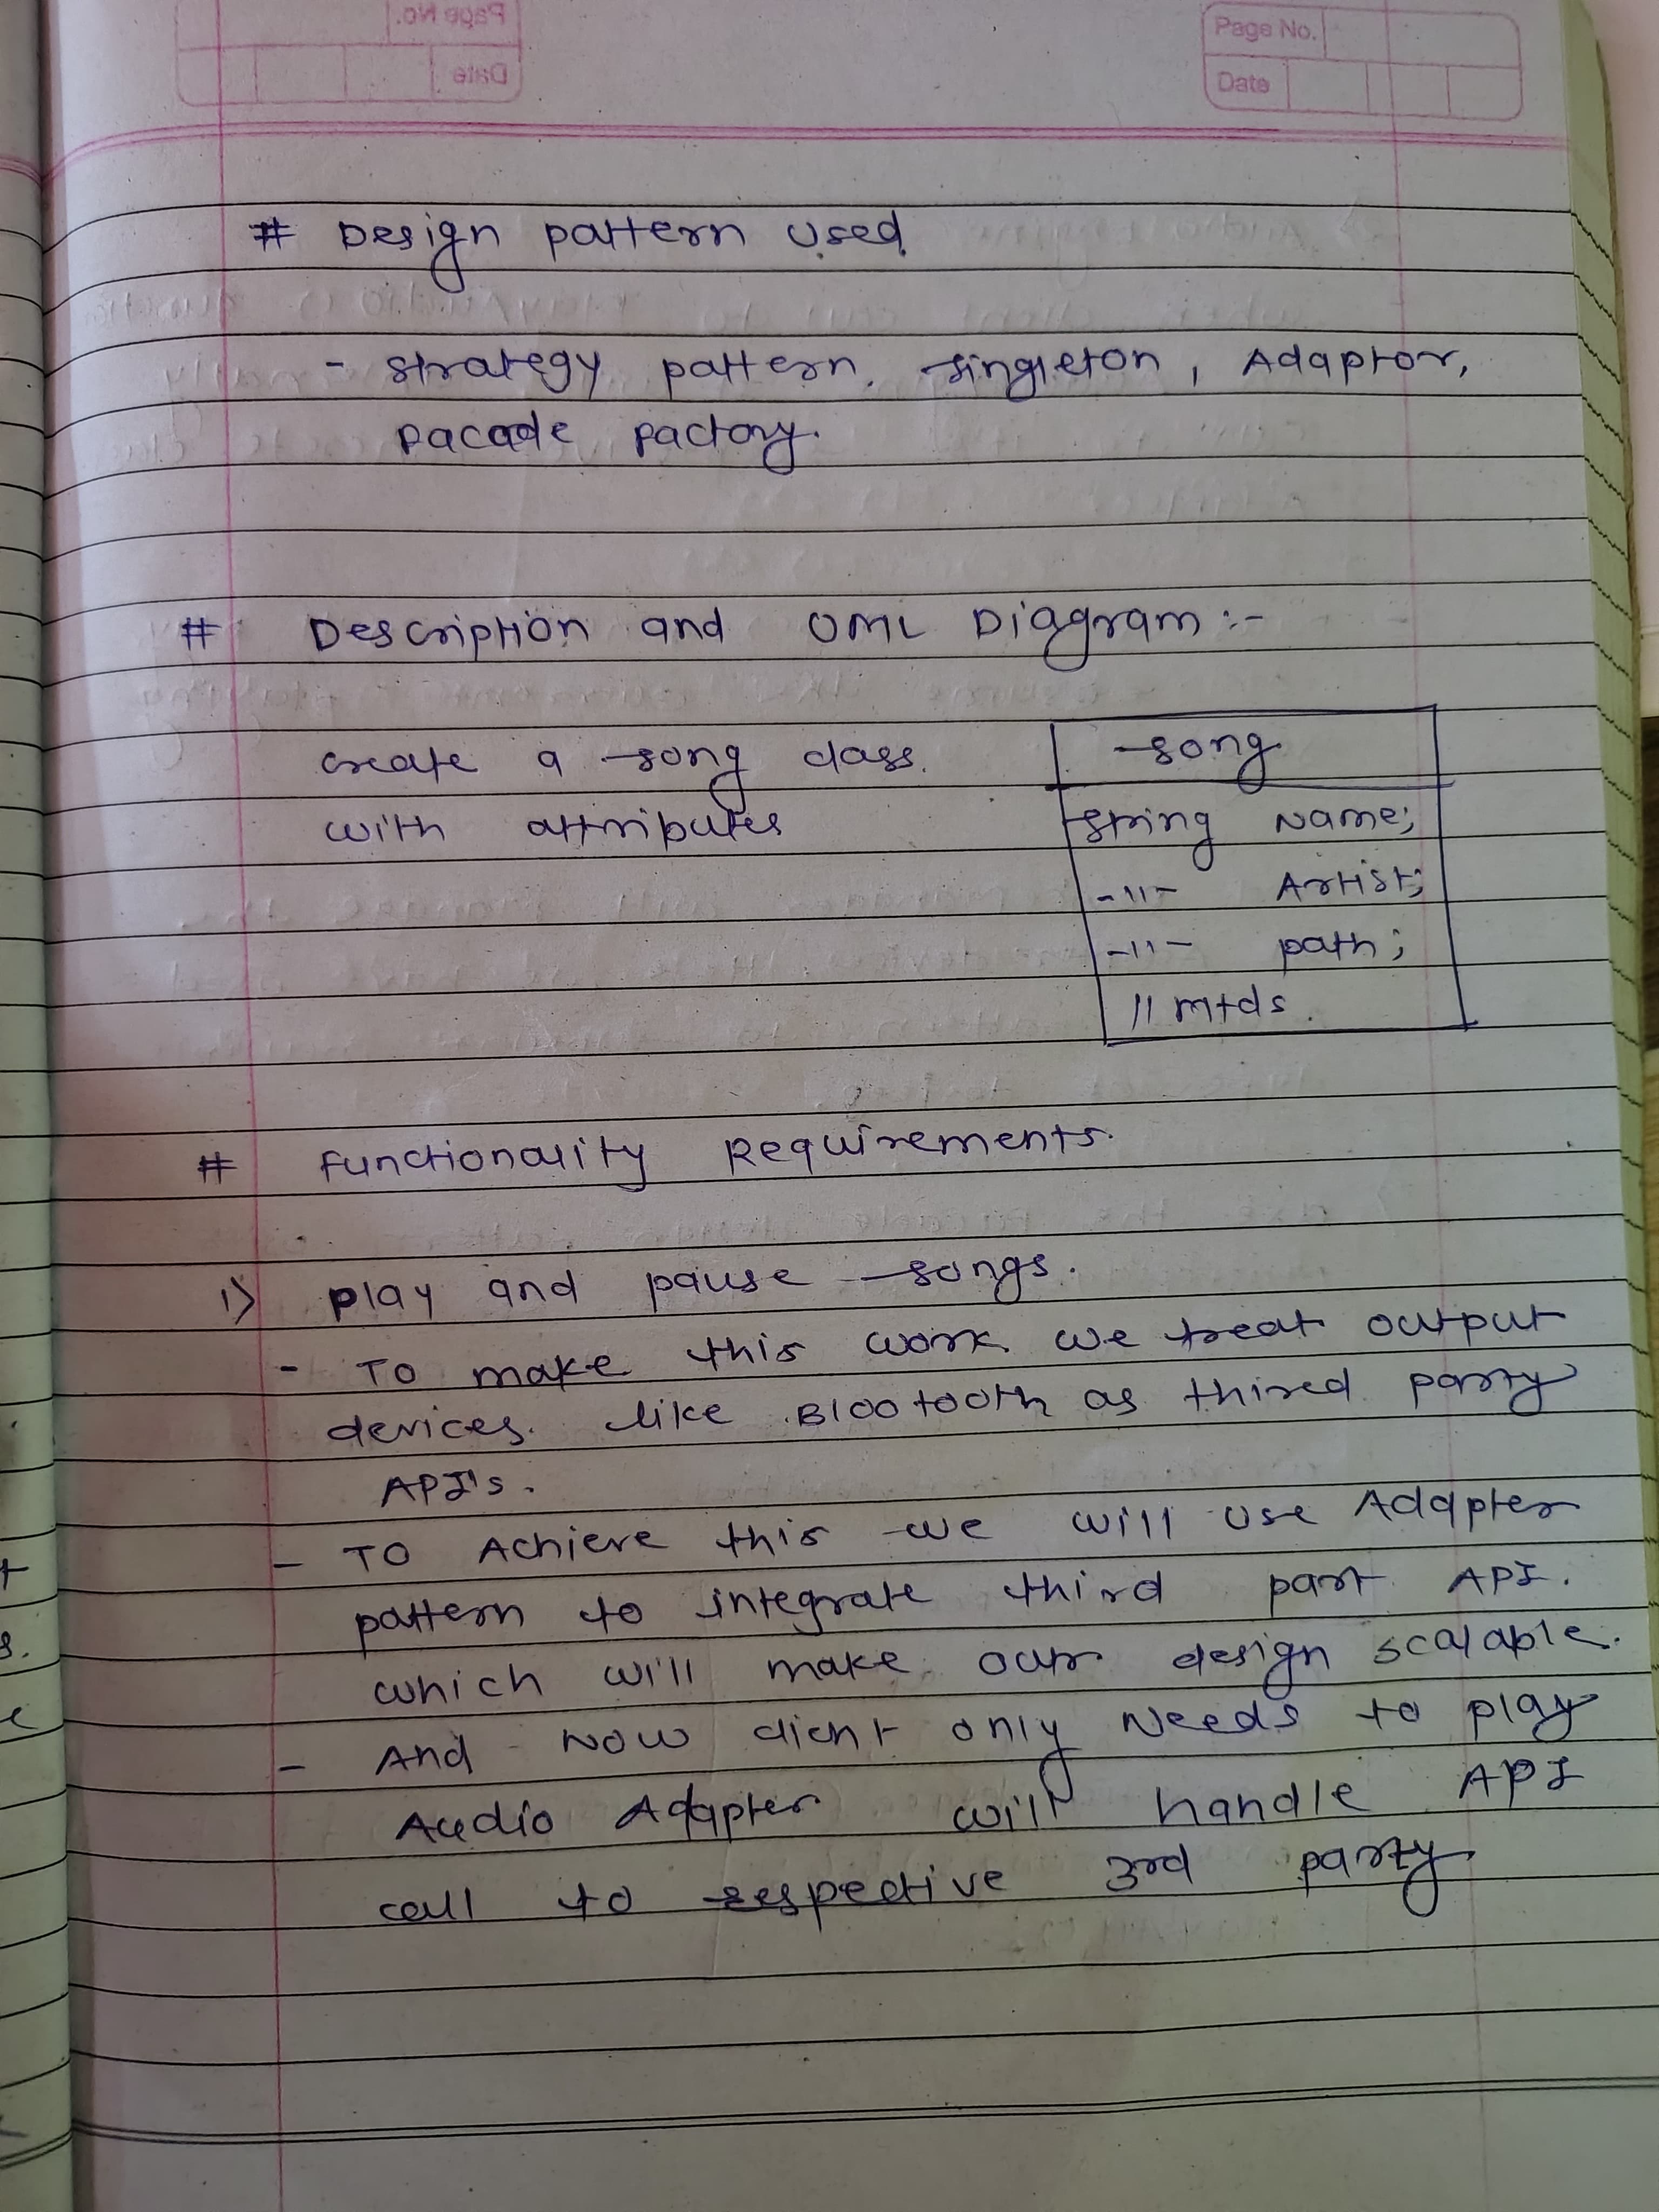 Page No.
Date
# Design pattern used
- strategy pattern, singleton, Adaptor,
Facade Factory.
# Description and UML Diagram :-
create a song class.
with attributes
song
string Name;
-11- Artist;
-11- path;
// mtds.
# Functionality Requirements.
1) play and pause songs.
- To make this work we treat output
devices. like Blootooth as thired party
API's.
- To Achieve this we will use Adapter
pattern to integrate third part API.
which will make our design scalable.
- And Now client only Needs to play
Audio Adapter will handle API
call to respective 3rd party